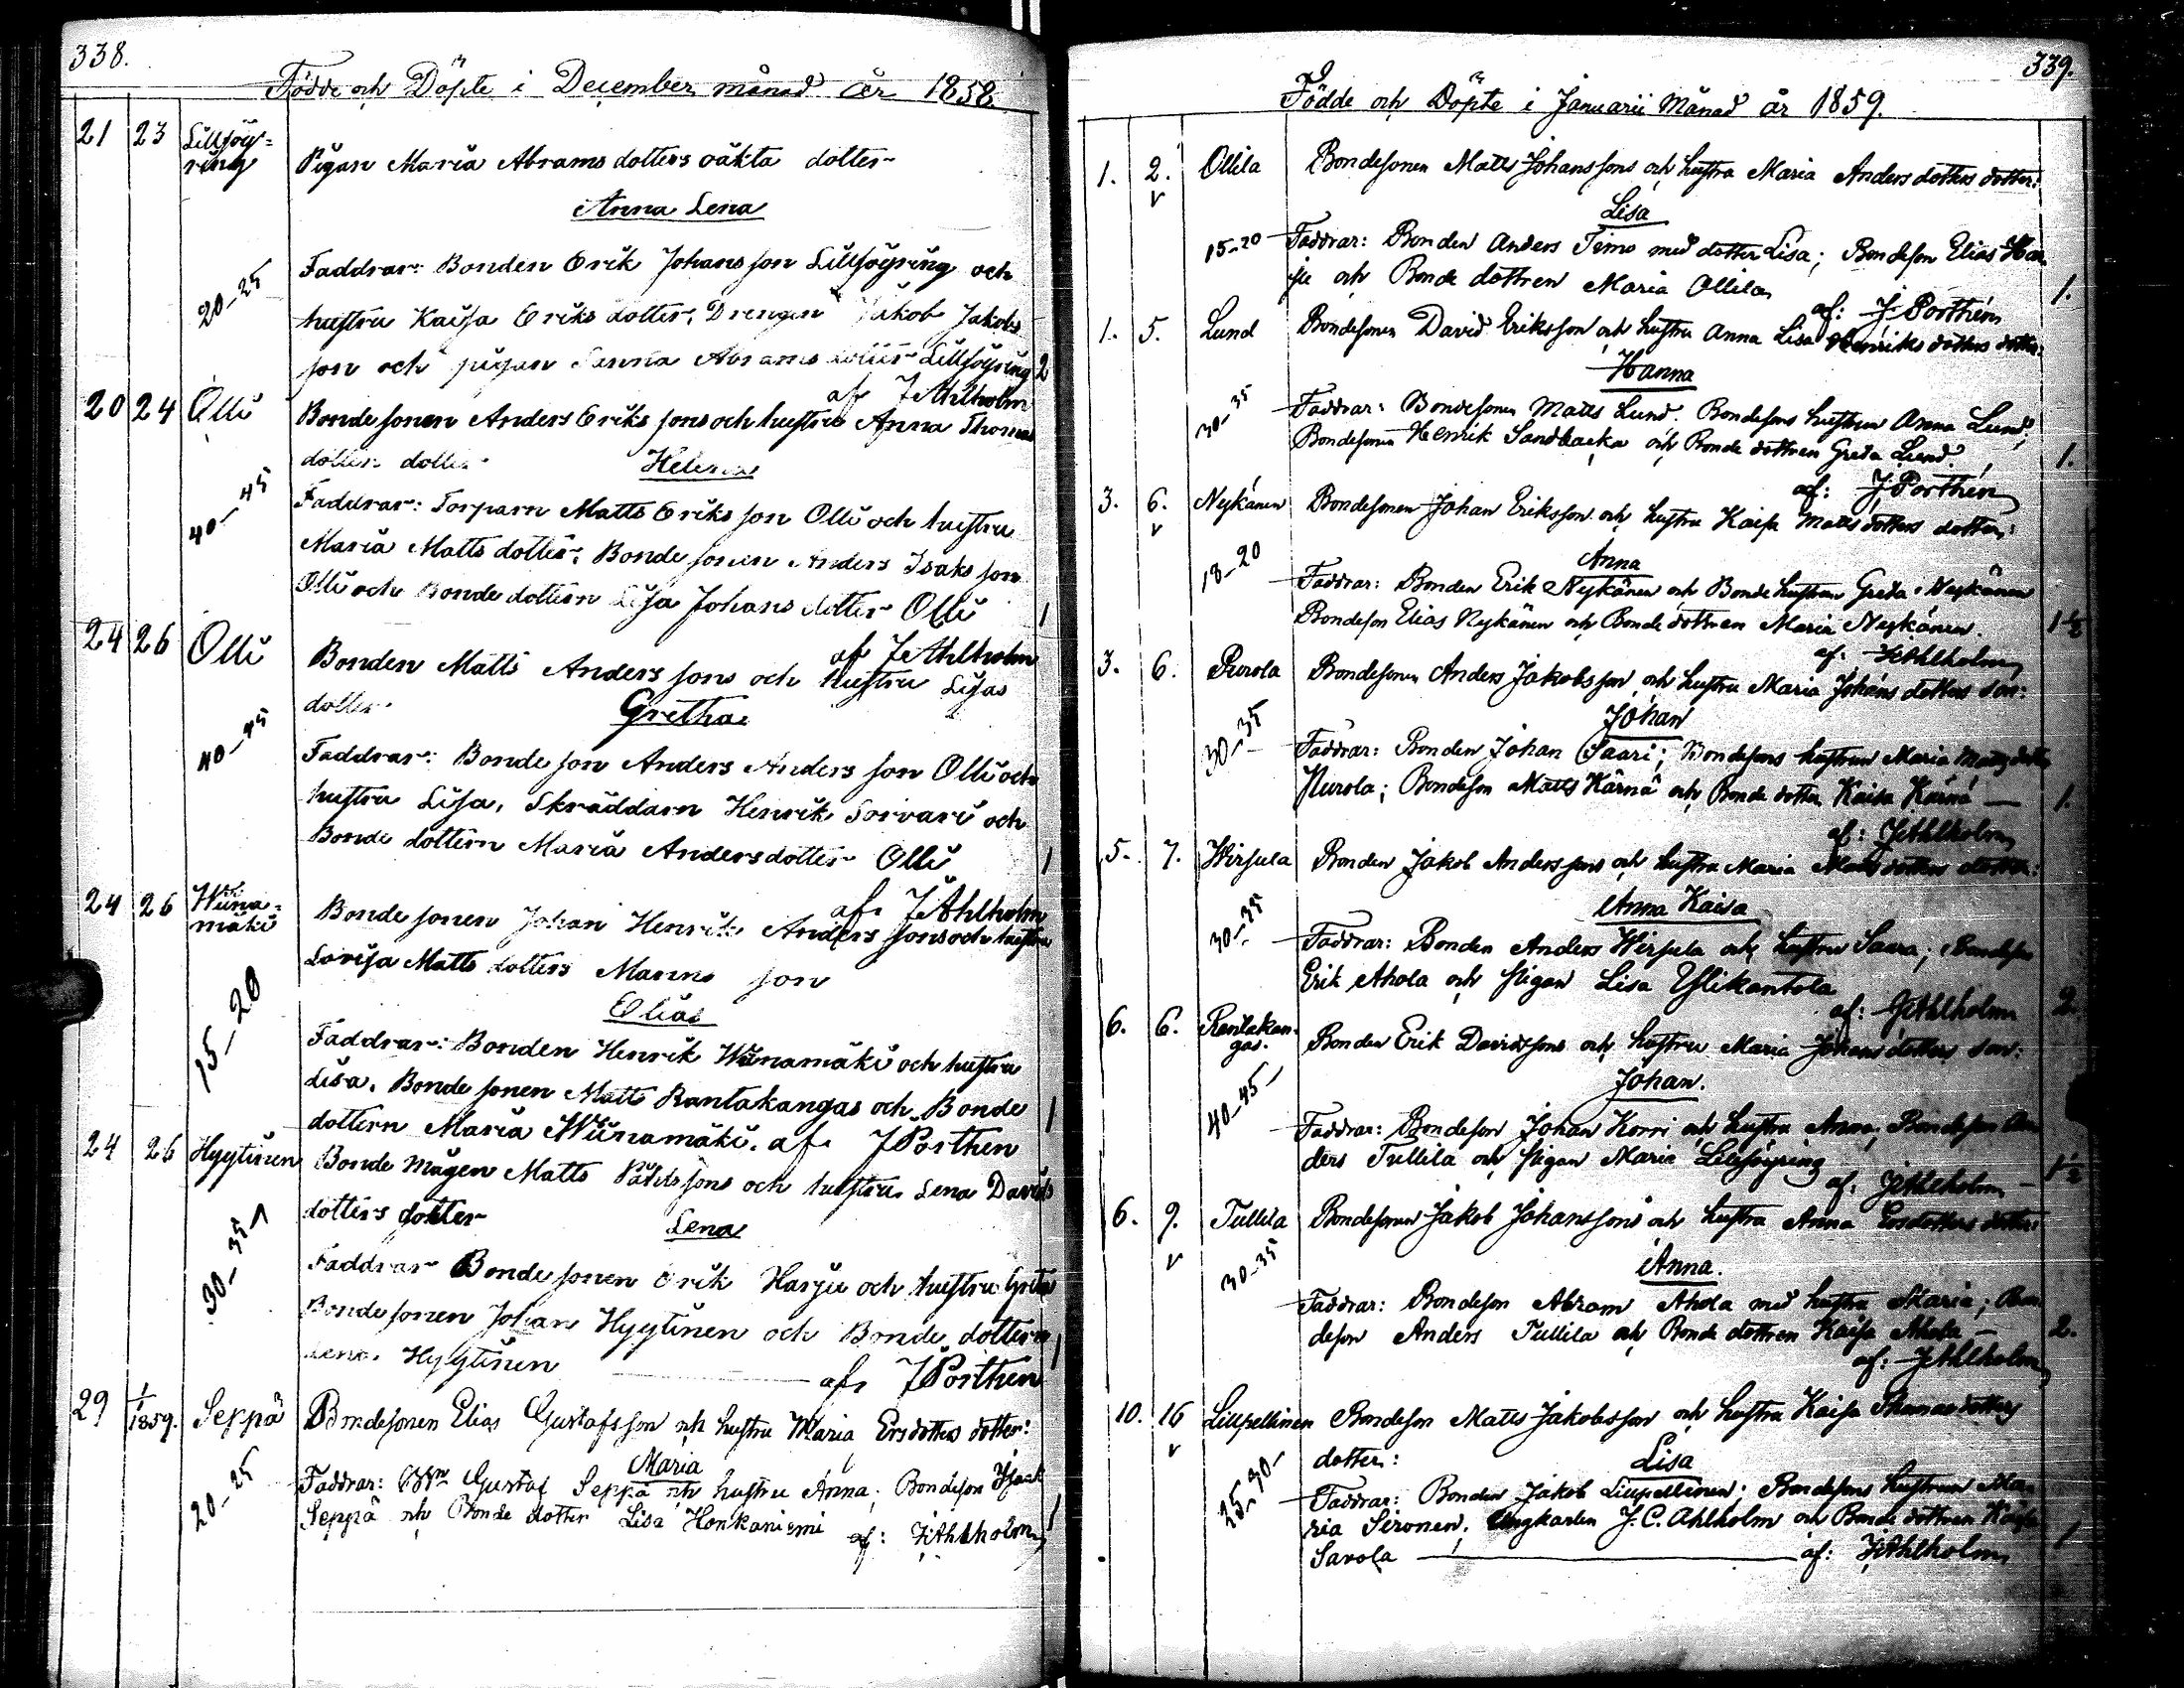 338.
Födde och Döpte i December månad år 1858
21 23 Lillsöy=
ring
Pigan Maria Abrams dotters oäkta dotter
Anna Lena
Faddrar: Bonden Erik Johansson Lillsöyring och
20-25
hustru Kaisa Eriks dotter, Drengen Jakob Jakobs
son och pigan Sanna Abrams dotter Lillsöyring 2
af J Ahlholm
20 24 Olli Bondesonen Anders Eriks sons och hustru Anna Thomas
dotters dotter Helena
40-45
Faddrar: Torparn Matts Eriks son Olli och hustru
Maria Matts dotter, Bonde sonen Anders Isaks son
Olli och Bonde dottern Lisa Johans dotter Olli 1
af J Ahlholm
24 26 Olli Bonden Matts Anders sons och hustru Lisas
dotter Gretha
40-45
Faddrar: Bonde son Anders Anders son Olli och
hustru Lisa, Skräddarn Henrik Sorvari och
Bonde dottern Maria Andersdotter Olli 1
af J Ahlholm
24 26 Wiina=
mäki
Bonde sonen Johan Henrik Anders sons och hustru
Lovisa Matts dotters Manns son
Elias
15-20
Faddrar: Bonden Henrik Wiinamäki och hustru
Lisa, Bonde sonen Matts Rantakangas och Bonde 1
dottern Maria Wiinamäki. af J Porthen
24 26 Hyytinen Bonde mågen Matts sons och hustru Lena Davids
dotters dotter Lena
30-35
Faddrar Bonde sonen Erik Harju och hustru Greta
Bonde sonen Johan Hyytinen och Bonde dottern 1
Lena Hyytinen af J Porthen
29 1/1859. Seppä Bondesonen Elias Gustafsson och hustru Maria Ersdotters dotter:
Maria
20-25
Faddrar: Gustaf Seppä och hustru Anna; Bondeson Isaak
Seppä och Bonde dotter Lisa Honkaniemi 1
af: J Ahlholm
339.
Födde och Döpte i Januarii Månad år 1859.
1. 2. Ollila Bondesonen Matts Johanssons och hustru Maria Anders dotters dotter:
Lisa
15-20 Faddrar: Bonden Anders Timo med dotter Lisa; Bondeson Elias Har-
ju och Bonde dottren Maria Ollila 1.
af: J Porthén
1. 5. Lund Bondesonen David Eriksson och hustru Anna Lisa Henriks dotters dotter:
Hanna
30-35 Faddrar: Bondesonen Matts Lund. Bondesons hustrun Anna Lund;
Bondesonen Henrik Sandbacka och Bonde dottren Greta Lund. 1.
af: J Porthén
3. 6. Nykänen Bondesonen Johan Eriksson och hustru Kaisa Matts dotters dotter:
Anna
18-20 Faddrar: Bonden Erik Nykänen och Bonde hustrun Greta Nykänen
Bondeson Elias Nykänen och Bonde dottren Maria Nykänen. 1 1/2
af: J Ahlholm
3. 6. Purola Bondesonen Anders Jakobsson och hustru Maria Johans dotters son:
Johan
30-35 Faddrar: Bonden Johan Saari; Bondesons hustrun Maria Matts dotter
Purola; Bondeson Matts Kärnä och Bonde dotter Kaisa Kärnä 1.
af: J Ahlholm
5. 7. Wirsula Bonden Jakob Anderssons och hustru Maria Matts dotters dotter:
Anna Kaisa
30-35 Faddrar: Bonden Anders Wirsula och hustru Saara; Bondeson
Erik Ahola och Pigan Lisa Ylikantola 2.
af: J Ahlholm
6. 6. Rantakan-
gas.
Bonden Erik Davidssons och hustru Maria Johans dotters son:
Johan.
40-45 Faddrar: Bondeson Johan Korri och hustru Anna; Bondeson An-
ders Tullila och Pigan Maria Lillsöyring 1 1/2
af: J Ahlholm
6. 9. Tullila Bondesonen Jakob Johanssons och hustru Anna Ersdotters dotter:
Anna.
30-35 Faddrar: Bondeson Abram Ahola med hustru Maria; Bon-
deson Anders Tullila och Bonde dottren Kaisa Ahola 2.
af: J Ahlholm
10. 16 Liispellinen Bondeson Matts Jakobsson och hustru Kaisa Thomas dotters
dotter: Lisa
25-30 Faddrar: Bonden Jakob Liispellinen; Bondesons hustrun Ma-
ria Sironen; Ungkarlen J. C. Ahlholm och Bonde dottren Kaisa
Savola af: J Ahlholm 1